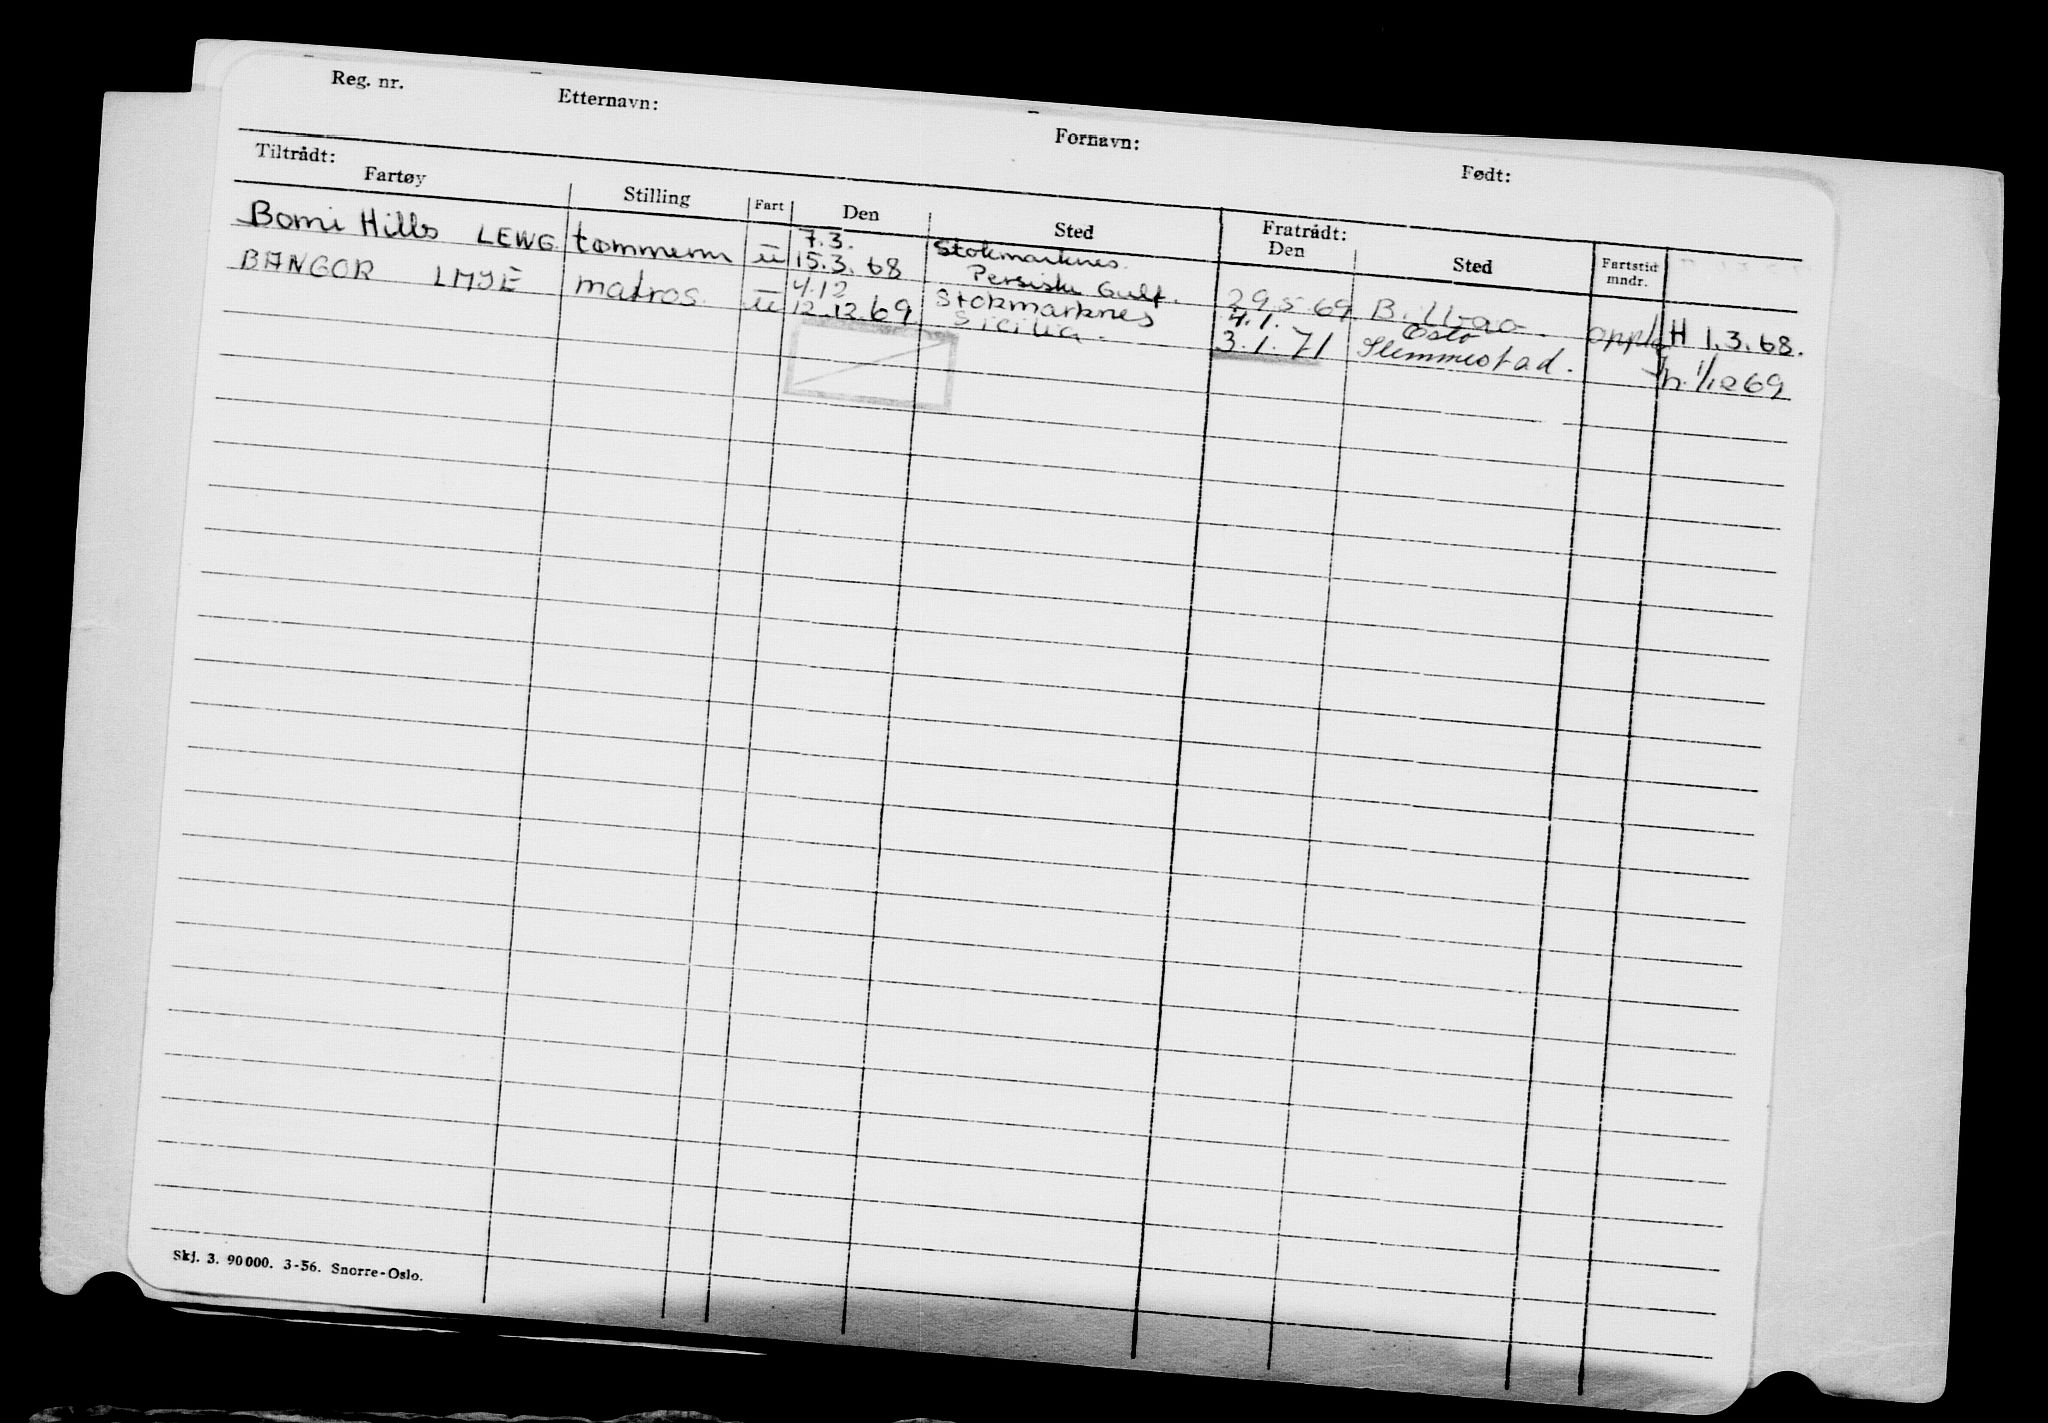 Reg. nr. Etternavn: Fornavn: Født:
Tiltrådt: Fratrådt:
Fartøy Stilling Fart Den Sted Den Sted Fartstid mndr.
7.3. Stokmarknes.
Bomi Hills LEWG tømmerm u 15.3.68 Persiske Gulf. 29.5.69 Bilbao oppl H 1.3.68.
4.12 Stokmarknes 4.1. Oslo
BANGOR matros. u 12.12.69 Sicilia. 3.1.71 Slemmestad. h. 1/12 69
Skj. 3. 90000. 3-56. Snorre-Oslo.